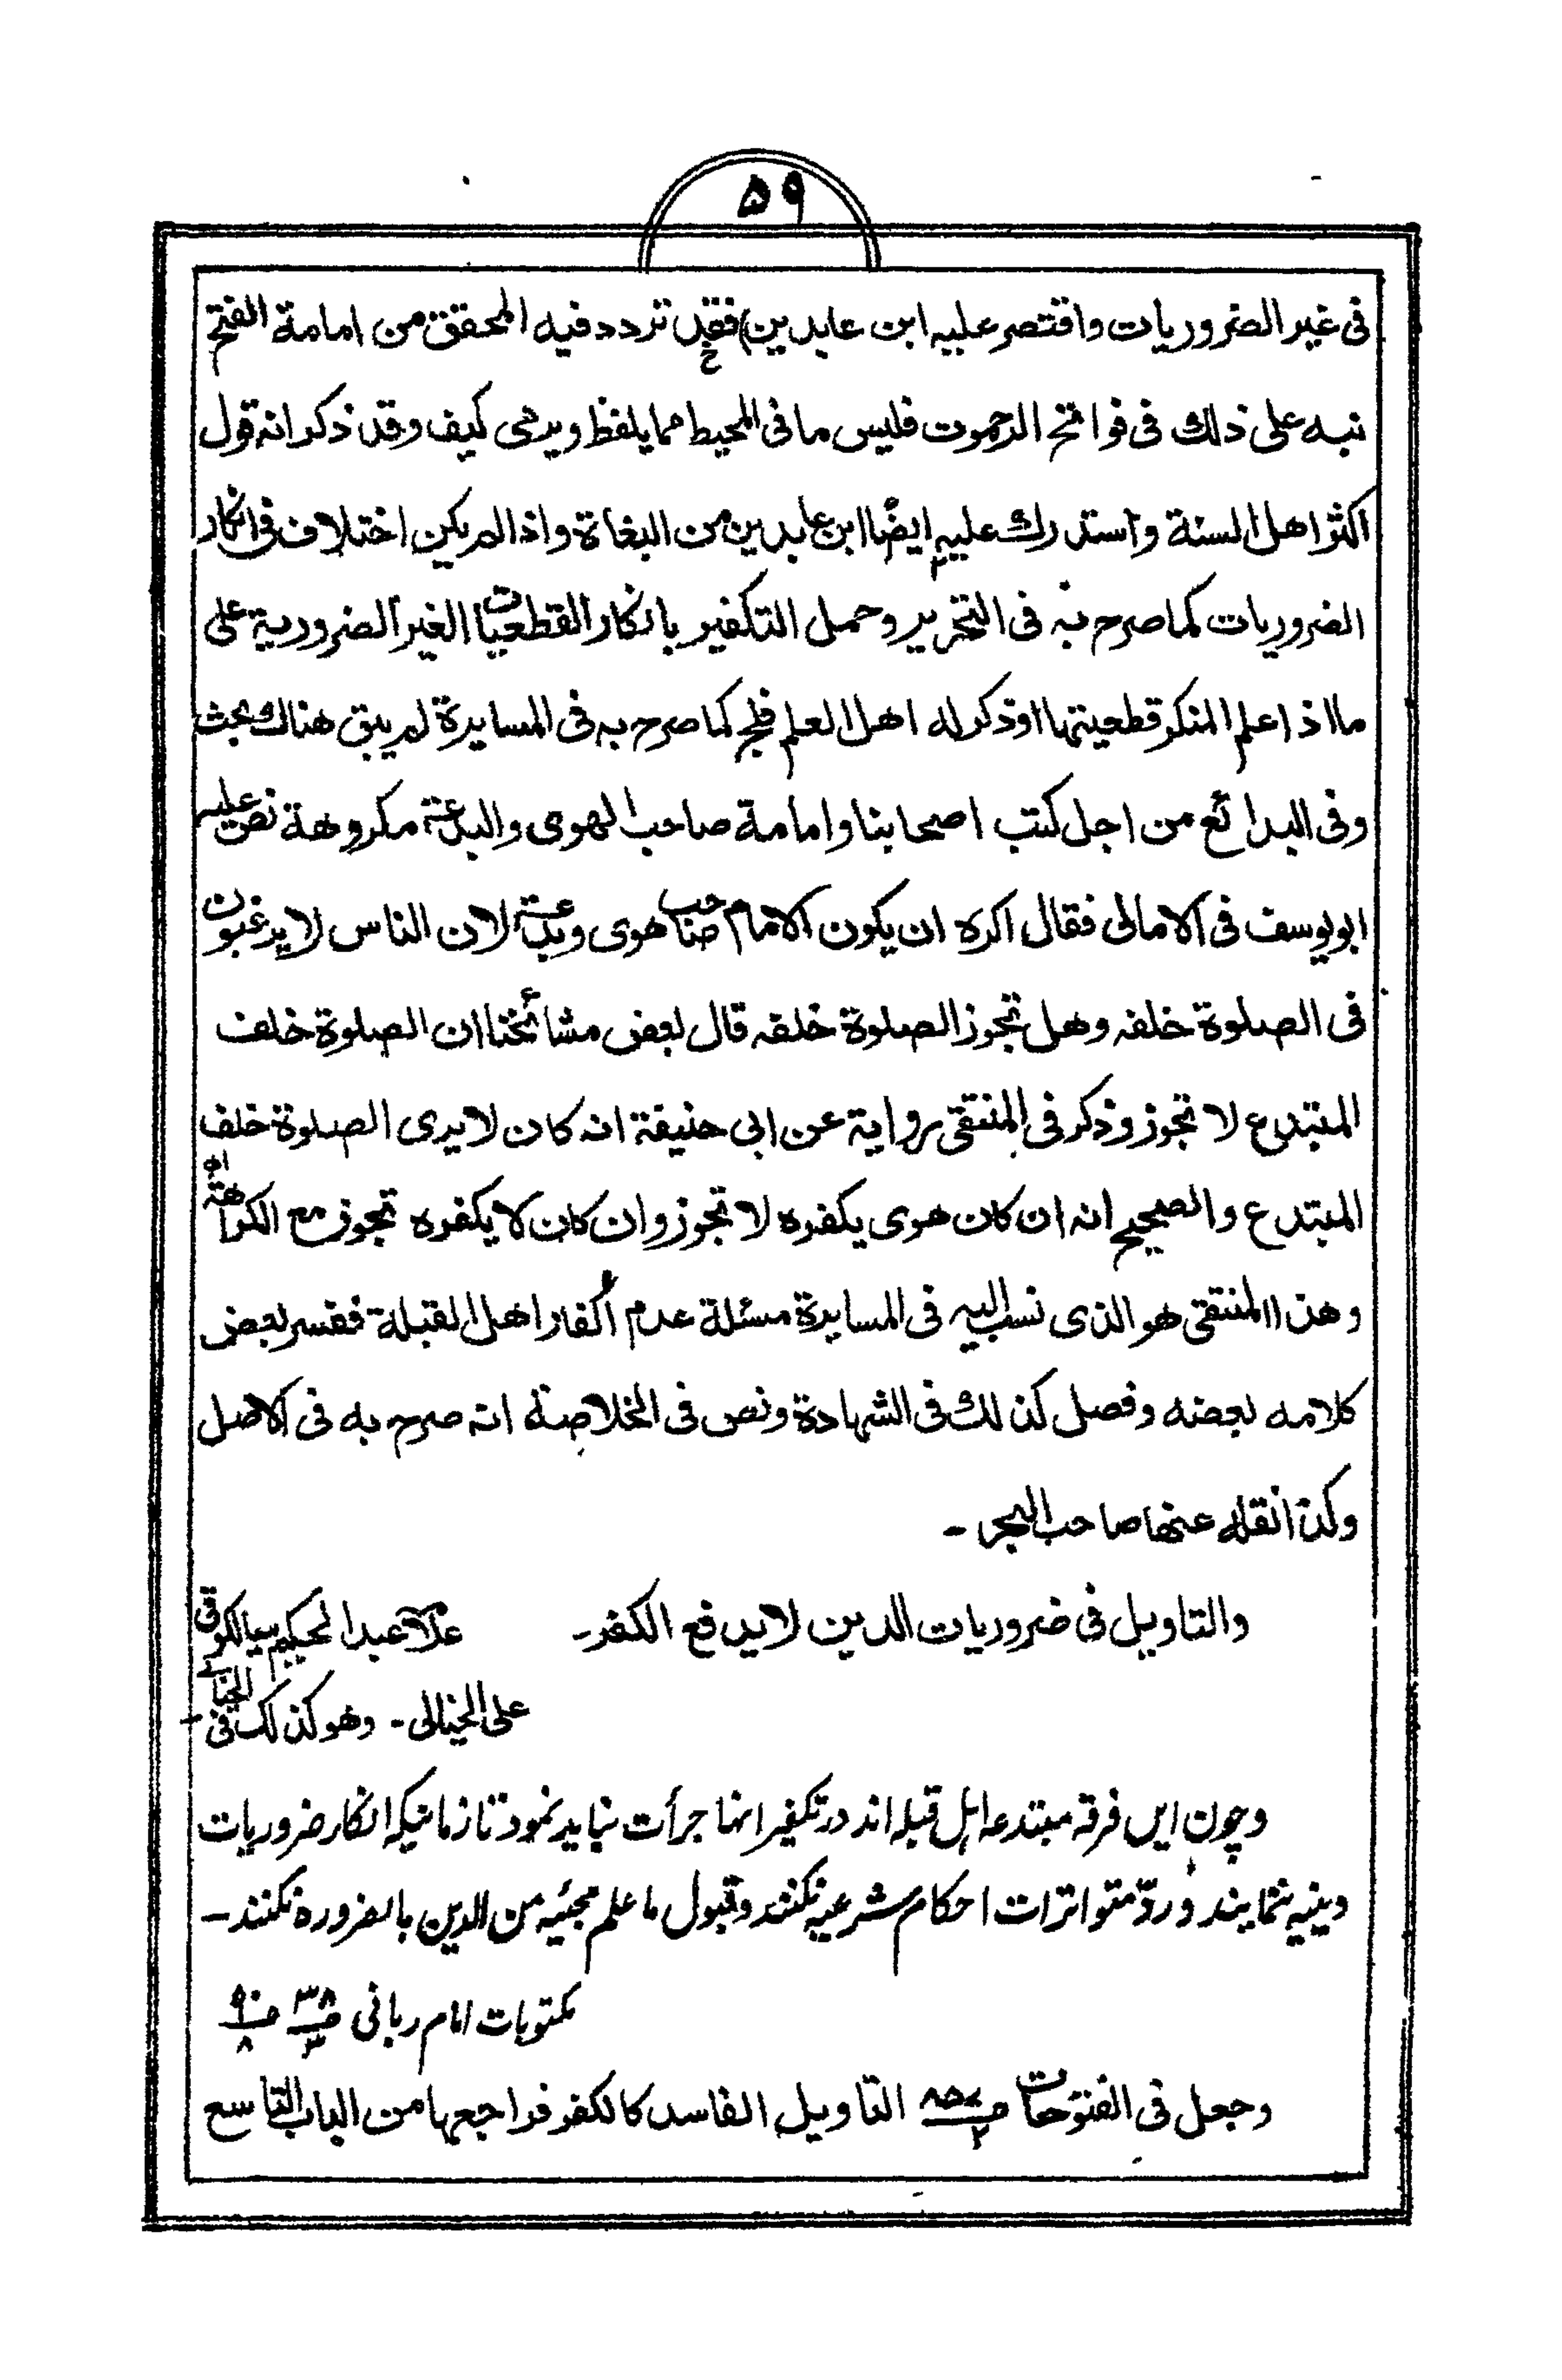 ۵۹
فی غیر الضروریات واقتصر علیه ابن عابدین) فقد تردد فیه المحقق من امامة الفتح
نبه علی ذلك فی فواتح الرحموت فلیس ما فی المحیط مما یلفظ ویرمی كیف وقد ذكر انه قول
اكثر اهل السنة واستدرك علیه ایضًا ابن عابدین من البغاة واذا لم یكن اختلاف فی انكار
الضروریات كما صرح به فی التحریر وحمل التكفیر بانكار القطعیات الغیر الضروریة علی
ما اذا علم المنكر قطعیتها او ذكر له اهل العلم فلج كما صرح به فی المسایرة لم یبق هناك بحث
وفی البدائع من اجل كتب اصحابنا وامامة صاحب الهوی والبدعة مكروهة نص علیه
ابویوسف فی الامالی فقال اكره ان یكون الامام صاحب هوی وبدعة لان الناس لا یرغبون
فی الصلوة خلفه وهل تجوز الصلوة خلفه قال بعض مشائخنا ان الصلوة خلف
المبتدع لا تجوز وذكر فی المنتقی روایة عن ابی حنیفة انه كان لا یری الصلوة خلف
المبتدع والصحیح انه ان كان هوی یكفره لا تجوز وان كان لا یكفره تجوز مع الكراهة اھ
وهذا المنتقی هو الذی نسب الیه فی المسایرة مسئلة عدم اكفار اهل القبلة ففسر بعض
كلامه بعضه وفصل كذلك فی الشهادة ونص فی الخلاصة انه صرح به فی الاصل
وكذا نقله عنها صاحب البحر۔
والتاویل فی ضروریات الدین لا یدفع الكفر۔ علامه عبدالحكیم سیالكوتی
علی الخیالی۔ وهو كذلك فی الخیالی۔
وچون ایں فرقہ مبتدعہ اہل قبلہ اند در تكفیر انہا جرأت نباید نمود تا زمانیكہ انكار ضروریات
دینیہ ننمایند و ردّ متواترات احكام شرعیہ نكنند وقبول ما علم مجیئہ من الدین بالضرورہ نكنند۔
مكتوبات امام ربانی ۳۸/۳ ص ۹۰/۸
وجعل فی الفتوحات ص ۸۵۷/۲ التاویل الفاسد كالكفر فراجعها من الباب التاسع